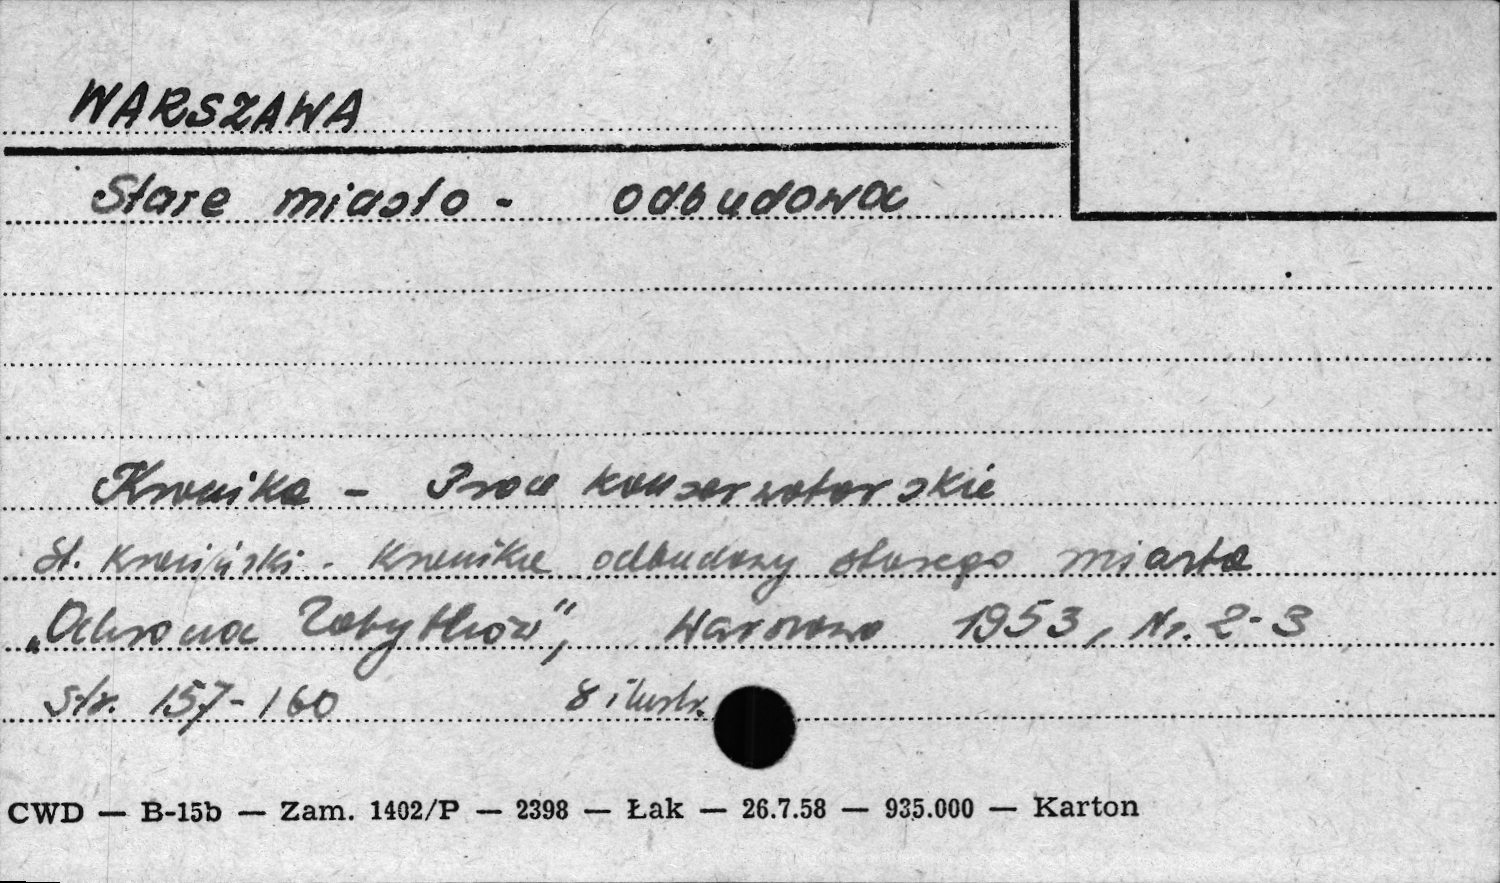 WARSZAWA
Stare miasto - odbudowa
Kronika - Prace konserwatorskie
St. Krasiński. Kronika odbudowy starego miasta
„Ochrona Zabytków", Warszawa 1953, Nr. 2-3
str. 157-160 8 ilustr.
CWD — B-15b — Zam. 1402/P — 2398 — Łak — 26.7.58 — 935.000 — Karton